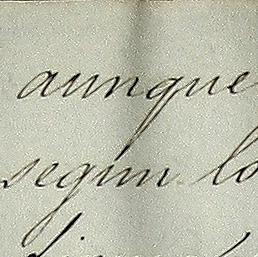 aunque
segun lo